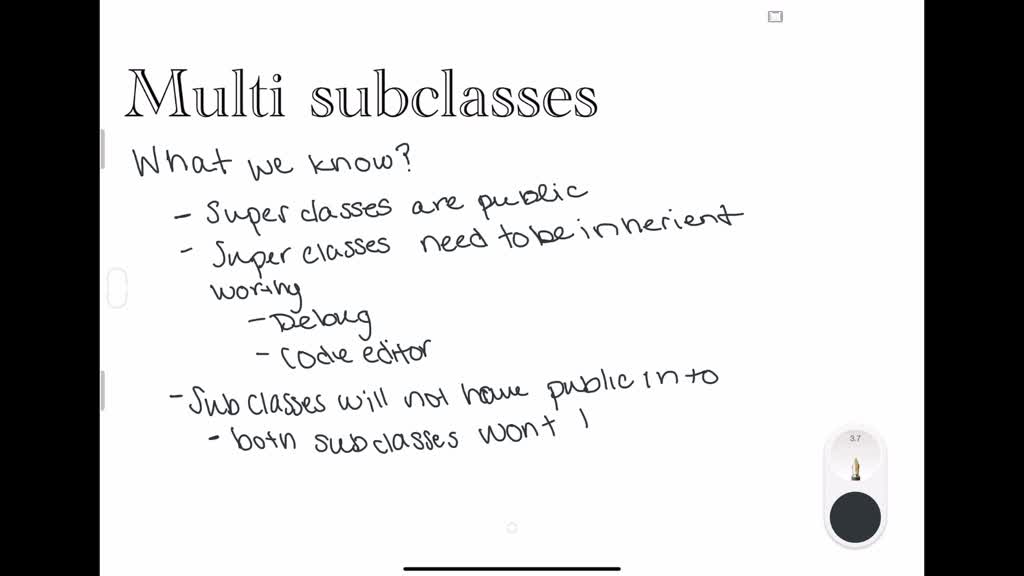 Multi subclasses
What we know?
- Super classes are public
- Super classes need to be inherient
woring
- Debug
- Code editor
- Sub classes will not have public into
- both subclasses wont
3.7